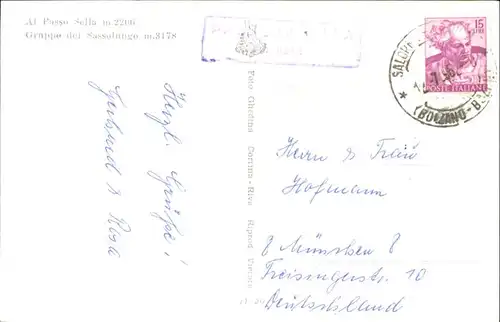 Al Passo Sella m.2206
Gruppo del Sassolungo m.3178
Herzl. Grüße!
Gertrud & Rosa
Foto Ghedina Cortina - Riva Riprod. Vietata
15
LIRE
POSTE ITALIANE
(BOLZANO-
Herrn & Frau
Hofmann
8 München 8
Freisingerstr. 10
Deutschland